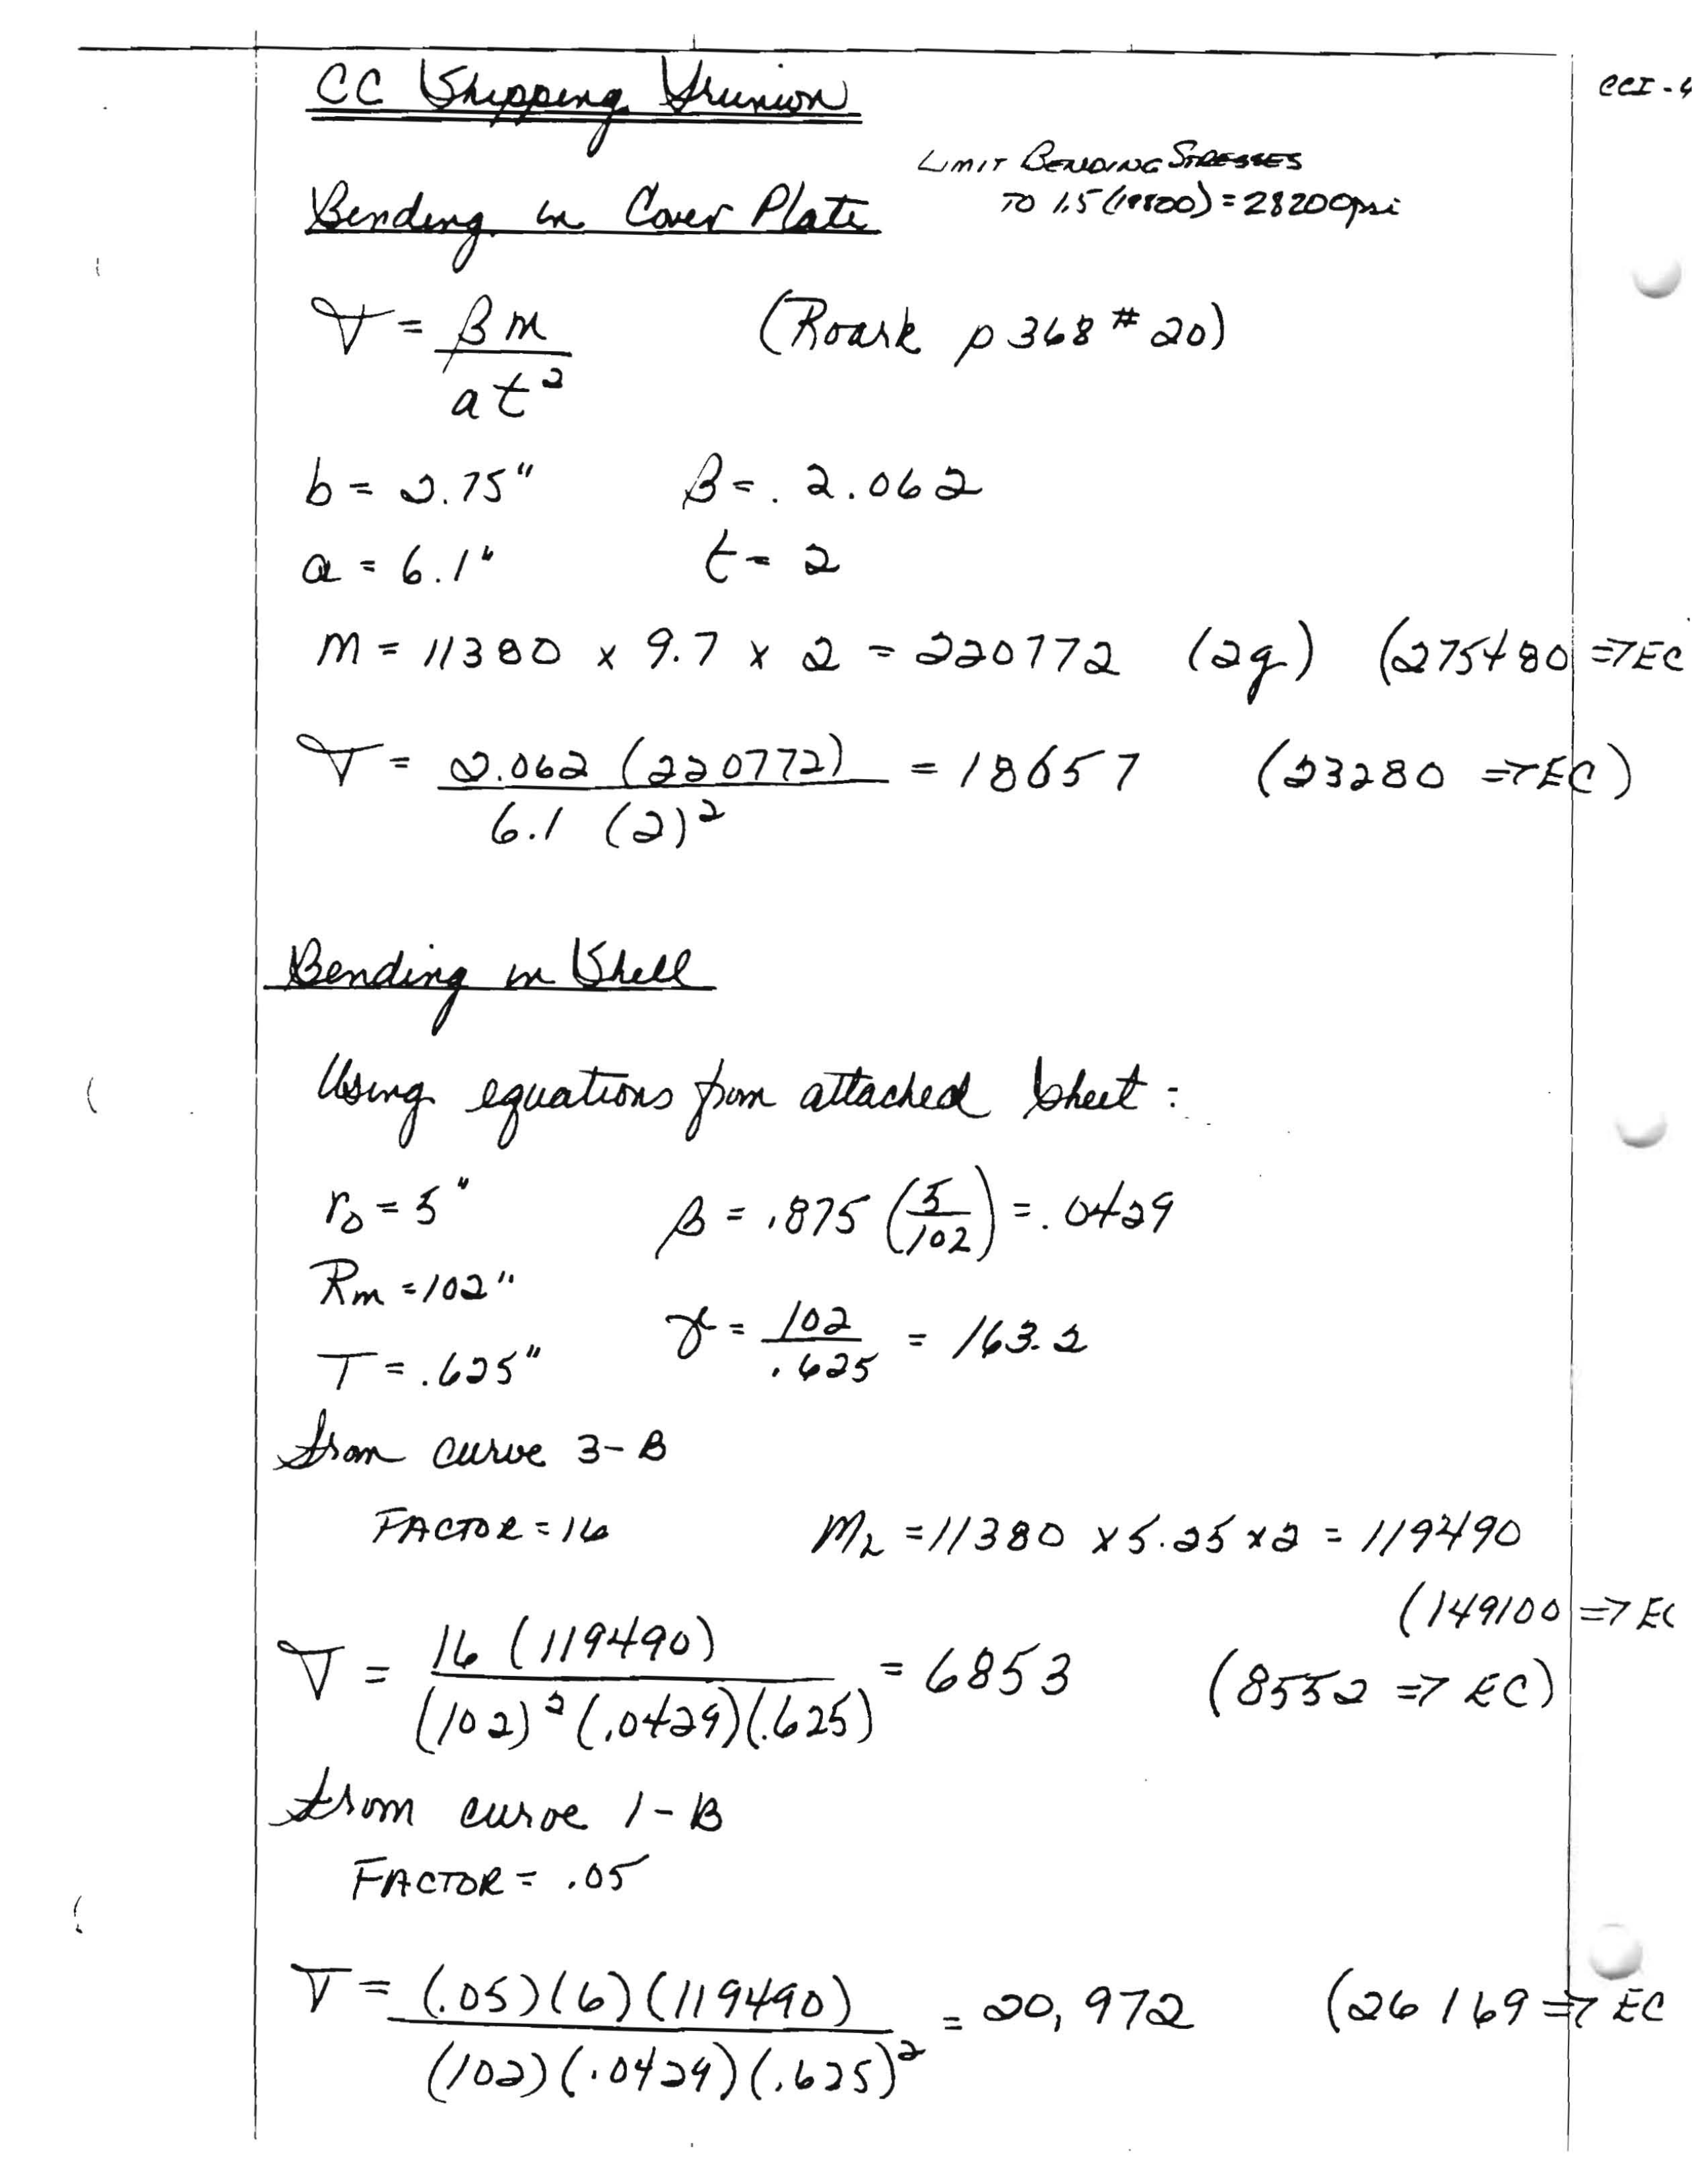 CCI-4
CC Shipping Trunion
LIMIT BENDING STRESSES
TO 1.5 (18800) = 28200psi
Bending in Cover Plate
σ = βm / at² (Roark p 368 # 20)
b = 2.75" β = . 2.062
a = 6.1" t = 2
M = 11380 x 9.7 x 2 = 220772 (2g) (275480 => EC
σ = 2.062 (220772) / 6.1 (2)² = 18657 (23280 => EC)
Bending in Shell
Using equations from attached sheet :
r₀ = 5" β = .875 (5/102) = .0429
Rm = 102"
γ = 102 / .625 = 163.2
T = .625"
from curve 3-B
FACTOR = 16 M_L = 11380 x 5.25 x 2 = 119490
(149100 => EC
σ = 16 (119490) / (102)² (.0429)(.625) = 6853 (8552 => EC)
from curve 1-B
FACTOR = .05
σ = (.05)(6)(119490) / (102)(.0429)(.625)² = 20,972 (26 169 => EC